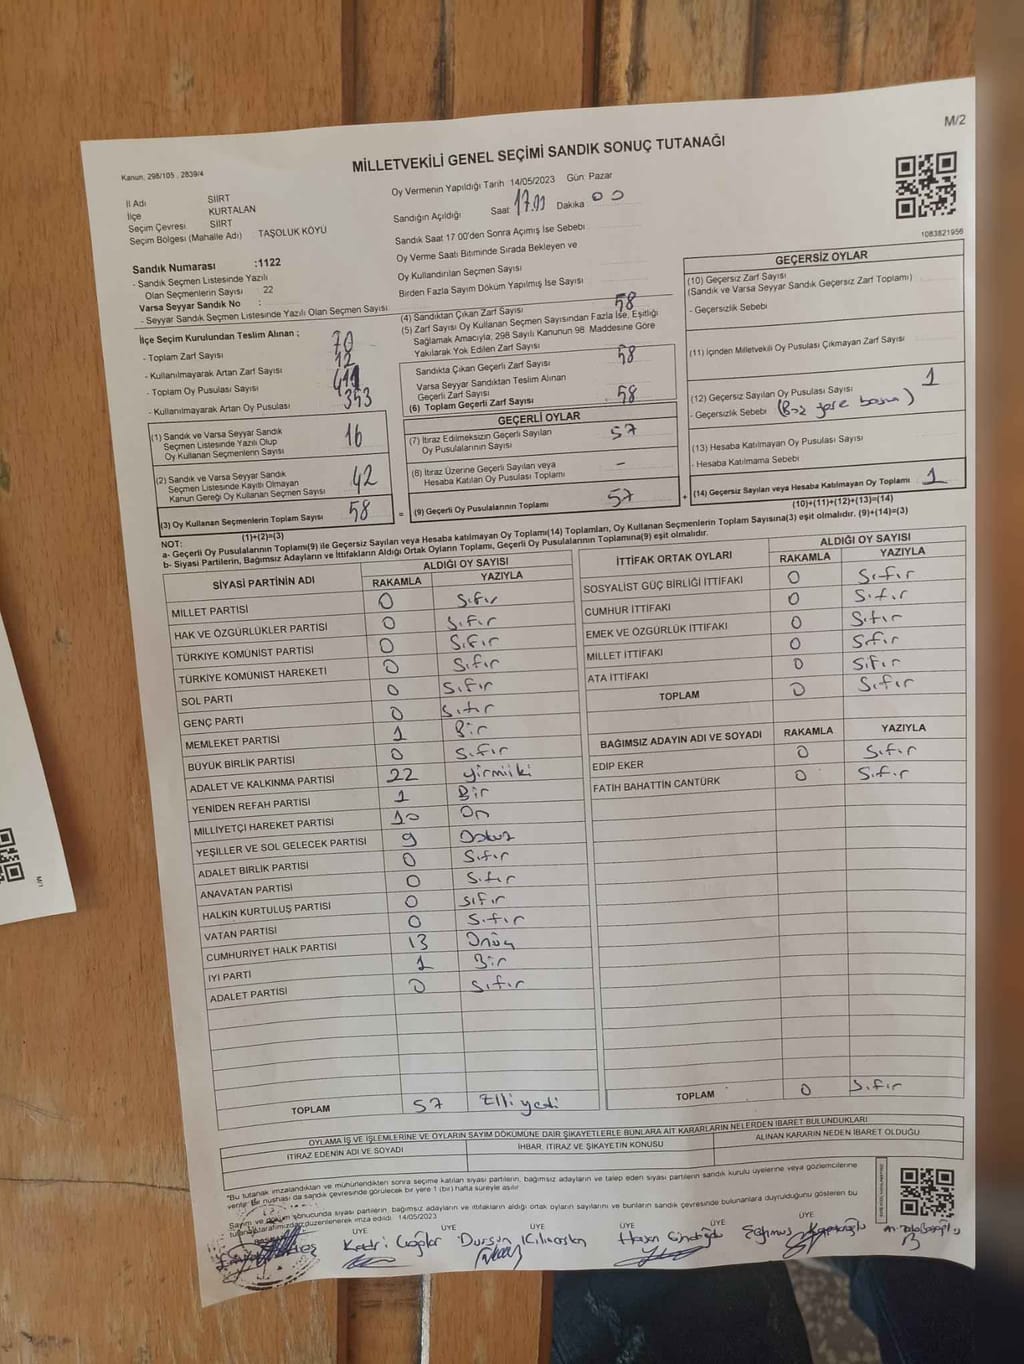 M/2
Kanun, 298/105 , 2839/4
MİLLETVEKİLİ GENEL SEÇİMİ SANDIK SONUÇ TUTANAĞI
İl Adı SİİRT
İlçe KURTALAN
Seçim Çevresi SİİRT
Seçim Bölgesi (Mahalle Adı) TAŞOLUK KÖYÜ
Oy Vermenin Yapıldığı Tarih 14/05/2023 Gün: Pazar
Sandığın Açıldığı Saat 17.00 Dakika 00
Sandık Saat 17 00'den Sonra Açımış İse Sebebi
Oy Verme Saati Bitiminde Sırada Bekleyen ve
Oy Kullandırılan Seçmen Sayısı
Birden Fazla Sayım Döküm Yapılmış İse Sayısı
1083821956
Sandık Numarası :1122
- Sandık Seçmen Listesinde Yazılı
Olan Seçmenlerin Sayısı : 22
Varsa Seyyar Sandık No :
- Seyyar Sandık Seçmen Listesinde Yazılı Olan Seçmen Sayısı
İlçe Seçim Kurulundan Teslim Alınan ;
- Toplam Zarf Sayısı 70
- Kullanılmayarak Artan Zarf Sayısı 12
- Toplam Oy Pusulası Sayısı
- Kullanılmayarak Artan Oy Pusulası 353
(1) Sandık ve Varsa Seyyar Sandık
Seçmen Listesinde Yazılı Olup
Oy Kullanan Seçmenlerin Sayısı 16
(2) Sandık ve Varsa Seyyar Sandık
Seçmen Listesinde Kayıtlı Olmayan
Kanun Gereği Oy Kullanan Seçmen Sayısı 42
(3) Oy Kullanan Seçmenlerin Toplam Sayısı 58
(1)+(2)=(3)
(4) Sandıktan Çıkan Zarf Sayısı 58
(5) Zarf Sayısı Oy Kullanan Seçmen Sayısından Fazla İse, Eşitliği
Sağlamak Amacıyla, 298 Sayılı Kanunun 98 Maddesine Göre
Yakılarak Yok Edilen Zarf Sayısı
Sandıkta Çıkan Geçerli Zarf Sayısı 58
Varsa Seyyar Sandıktan Teslim Alınan
Geçerli Zarf Sayısı
(6) Toplam Geçerli Zarf Sayısı 58
GEÇERLİ OYLAR
(7) İtiraz Edilmeksizin Geçerli Sayılan
Oy Pusulalarının Sayısı 57
(8) İtiraz Üzerine Geçerli Sayılan veya
Hesaba Katılan Oy Pusulası Toplamı –
= (9) Geçerli Oy Pusulalarının Toplamı 57 +
GEÇERSİZ OYLAR
(10) Geçersiz Zarf Sayısı
(Sandık ve Varsa Seyyar Sandık Geçersiz Zarf Toplamı)
- Geçersizlik Sebebi
(11) İçinden Milletvekili Oy Pusulası Çıkmayan Zarf Sayısı
(12) Geçersiz Sayılan Oy Pusulası Sayısı 1
- Geçersizlik Sebebi
(13) Hesaba Katılmayan Oy Pusulası Sayısı
- Hesaba Katılmama Sebebi
(14) Geçersiz Sayılan veya Hesaba Katılmayan Oy Toplamı 1
(10)+(11)+(12)+(13)=(14)
NOT:
a- Geçerli Oy Pusulalarının Toplamı(9) ile Geçersiz Sayılan veya Hesaba katılmayan Oy Toplamı(14) Toplamları, Oy Kullanan Seçmenlerin Toplam Sayısına(3) eşit olmalıdır. (9)+(14)=(3)
b- Siyasi Partilerin, Bağımsız Adayların ve İttifakların Aldığı Ortak Oyların Toplamı, Geçerli Oy Pusulalarının Toplamına(9) eşit olmalıdır.
SİYASİ PARTİNİN ADI ALDIĞI OY SAYISI
RAKAMLA YAZIYLA
MİLLET PARTİSİ 0 Sıfır
HAK VE ÖZGÜRLÜKLER PARTİSİ 0 Sıfır
TÜRKİYE KOMÜNİST PARTİSİ 0 Sıfır
TÜRKİYE KOMÜNİST HAREKETİ 0 Sıfır
SOL PARTİ 0 Sıfır
GENÇ PARTİ 0 Sıfır
MEMLEKET PARTİSİ 1 Bir
BÜYÜK BİRLİK PARTİSİ 0 Sıfır
ADALET VE KALKINMA PARTİSİ 22 yirmiiki
YENİDEN REFAH PARTİSİ 1 Bir
MİLLİYETÇİ HAREKET PARTİSİ 10 On
YEŞİLLER VE SOL GELECEK PARTİSİ 9 Dokuz
ADALET BİRLİK PARTİSİ 0 Sıfır
ANAVATAN PARTİSİ 0 Sıfır
HALKIN KURTULUŞ PARTİSİ 0 sıfır
VATAN PARTİSİ 0 Sıfır
CUMHURİYET HALK PARTİSİ 13 Onüç
İYİ PARTİ 1 Bir
ADALET PARTİSİ 0 Sıfır
TOPLAM 57 Elli yedi
İTTİFAK ORTAK OYLARI ALDIĞI OY SAYISI
RAKAMLA YAZIYLA
SOSYALİST GÜÇ BİRLİĞİ İTTİFAKI 0 Sıfır
CUMHUR İTTİFAKI 0 Sıfır
EMEK VE ÖZGÜRLÜK İTTİFAKI 0 Sıfır
MİLLET İTTİFAKI 0 Sıfır
ATA İTTİFAKI 0 Sıfır
TOPLAM 0 Sıfır
BAĞIMSIZ ADAYIN ADI VE SOYADI RAKAMLA YAZIYLA
EDİP EKER 0 Sıfır
FATİH BAHATTİN CANTÜRK 0 Sıfır
TOPLAM 0 Sıfır
OYLAMA İŞ VE İŞLEMLERİNE VE OYLARIN SAYIM DÖKÜMÜNE DAİR ŞİKAYETLERLE BUNLARA AİT KARARLARIN NELERDEN İBARET BULUNDUKLARI
İTİRAZ EDENİN ADI VE SOYADI İHBAR, İTİRAZ VE ŞİKAYETİN KONUSU ALINAN KARARIN NEDEN İBARET OLDUĞU
*Bu tutanak imzalandıktan ve mühürlendikten sonra seçime katılan siyasi partilerin, bağımsız adayların ve talep eden siyasi partilerin sandık kurulu üyelerine veya gözlemcilerine
verilir. Bir nüshası da sandık çevresinde görülecek bir yere 1 (bir) hafta süreyle asılır
Sayım ve döküm sonucunda siyasi partilerin, bağımsız adayların ve ittifakların aldığı ortak oyların sayılarını ve bunların sandık çevresinde bulunanlara duyrulduğunu gösteren bu
tutanak tarafımızdan düzenlenerek imza edildi. 14/05/2023
BAŞKAN ÜYE ÜYE ÜYE ÜYE ÜYE
Kadri Çağlar Dursun Kılıcaslan Hasan
M/1